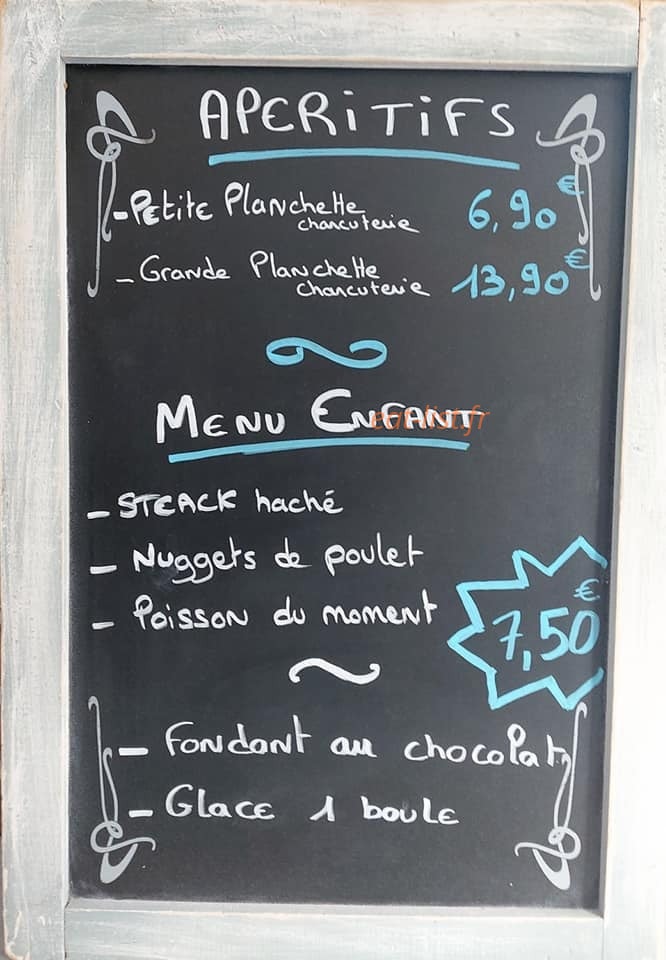 APERiTiFS
- PETiTE PlANcheTTE 6,90 €
charcuterie
- GRANDE PlANcheTTE 13,90 €
charcuterie
MENU ENFANT
eat-list.fr
- STEACK haché
- Nuggets de poulet
- Poisson du moment
7,50 €
~
- Fondant au chocolat
- GlacE 1 boulE